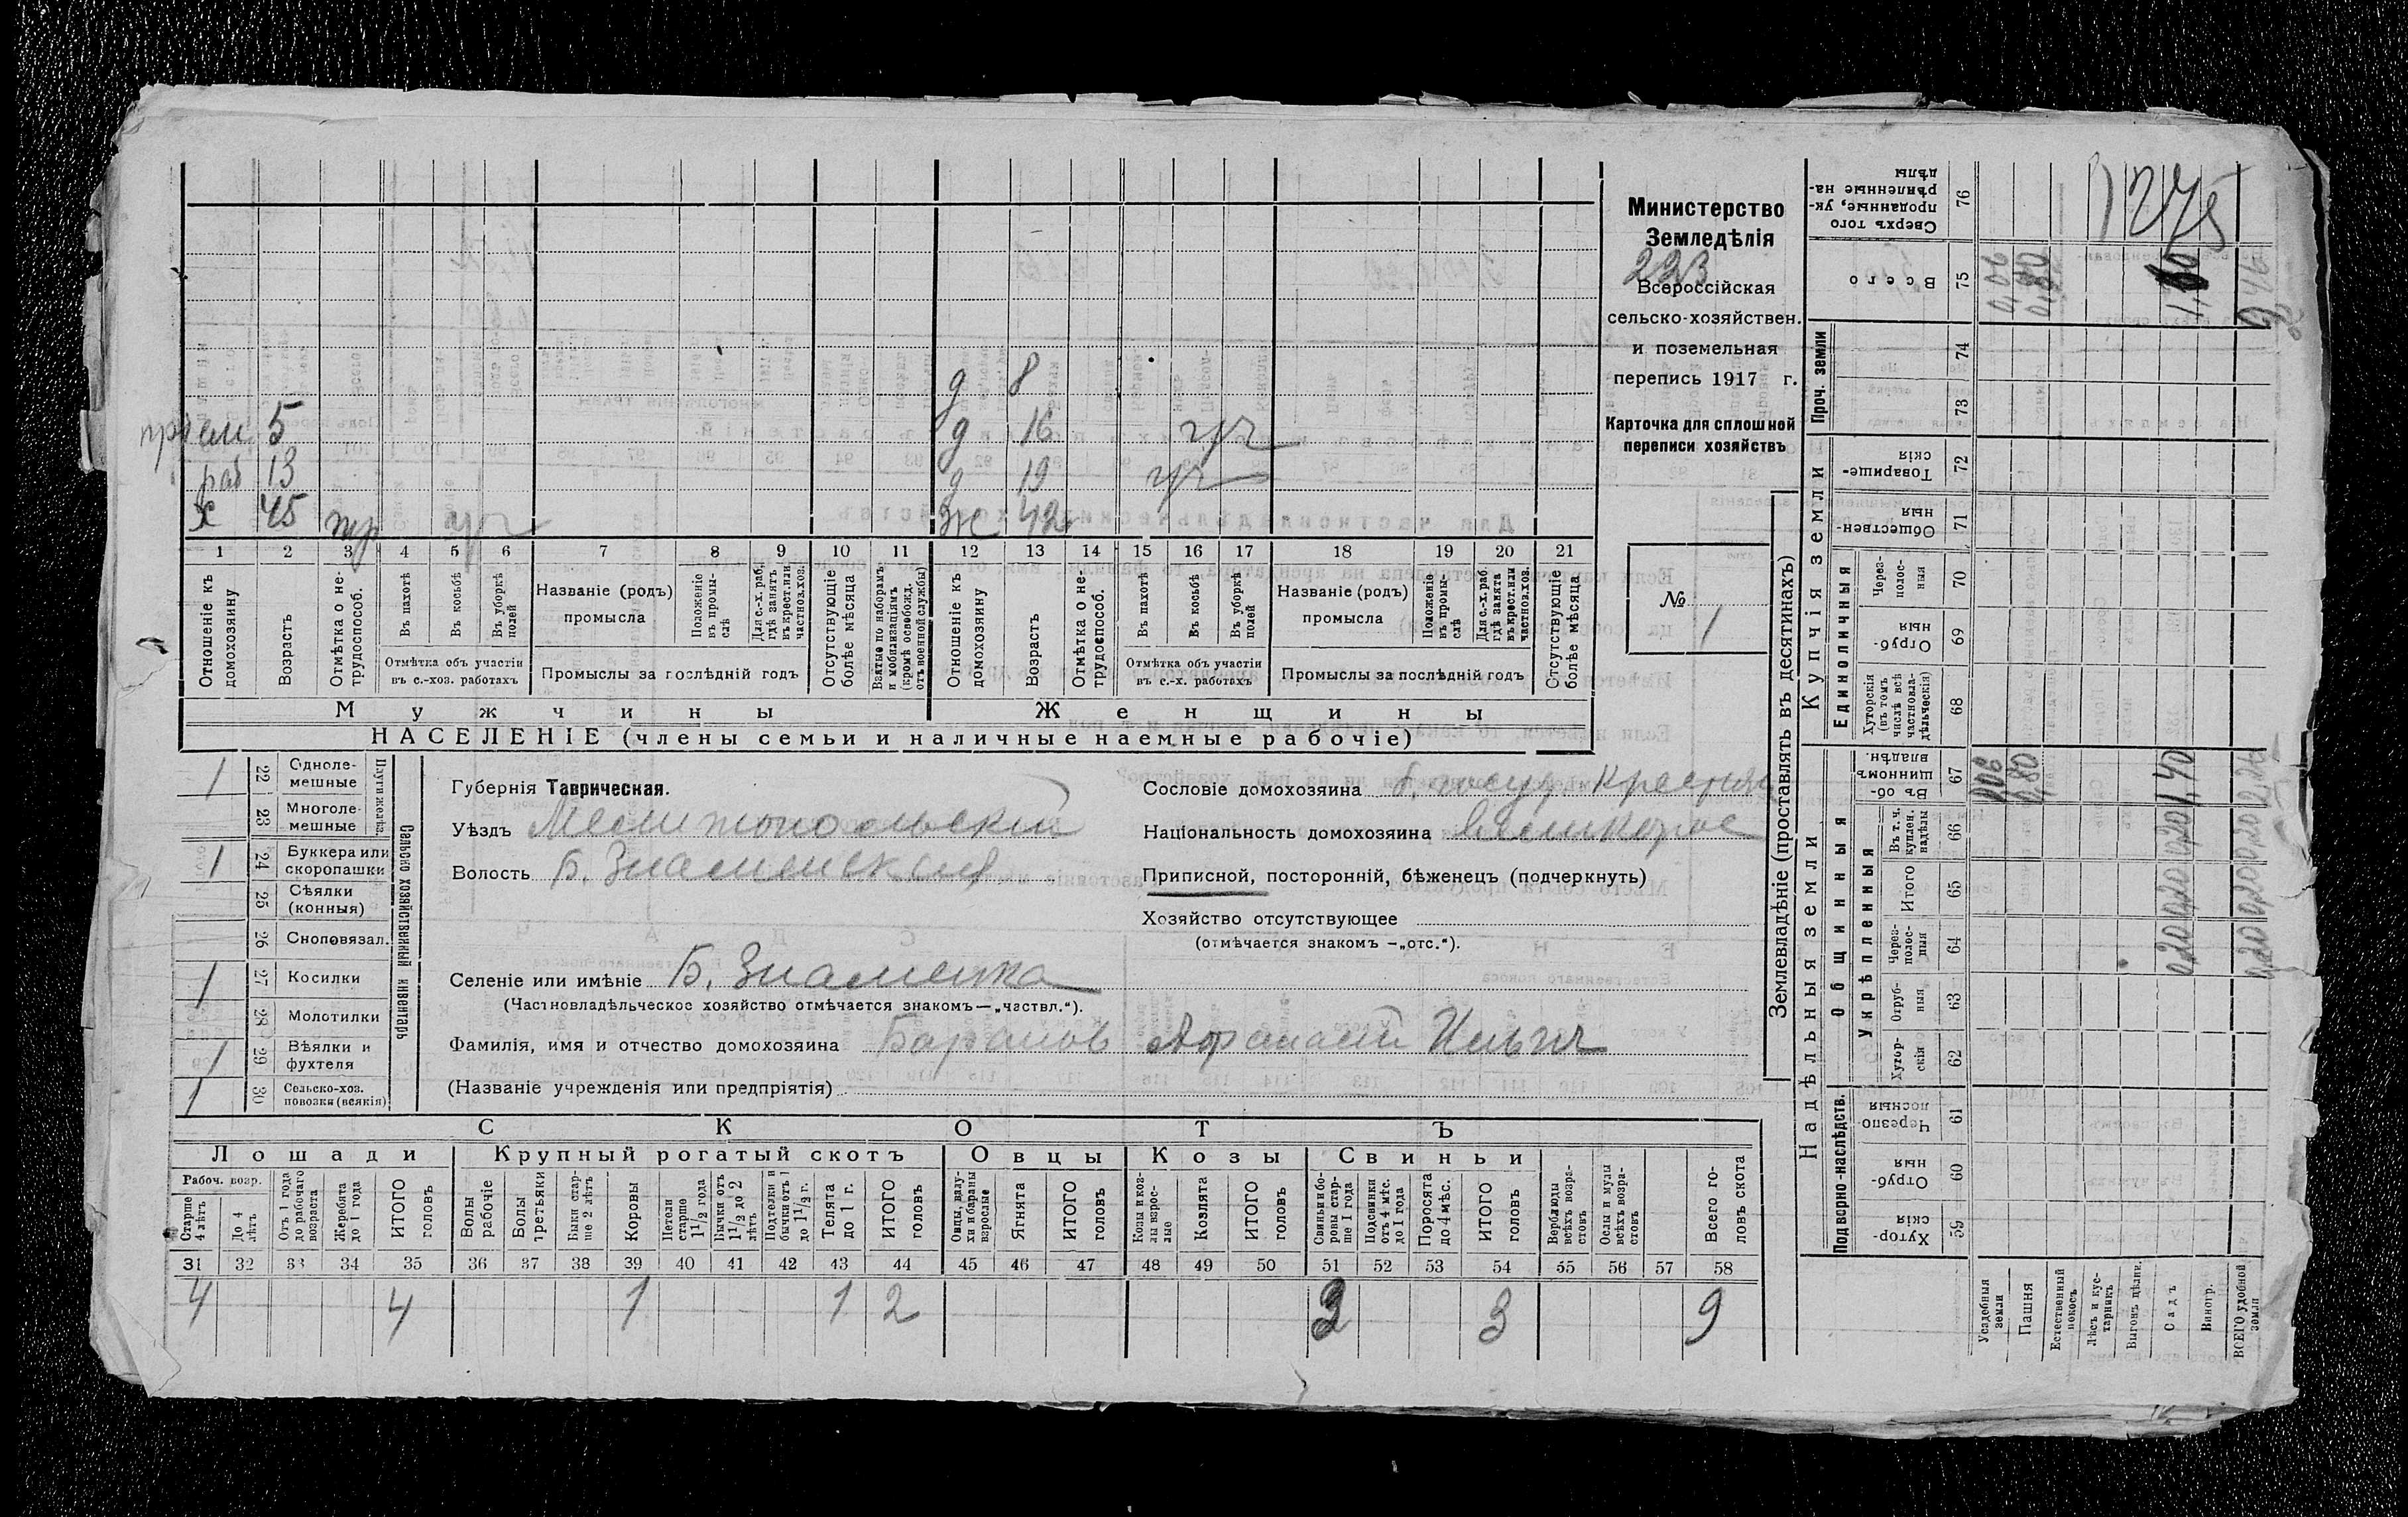 Министерство
Земледѣлія
223
Всероссійская
сельско-хозяйствен.
и поземельная
перепись 1917 г.
Карточка для сплошной
переписи хозяйствъ
№ 1
д 8
прием 5
д 16
раб 13
д 19
х 45
ж 42
1 2 3 4 5 6 7 8 9 10 11 12 13 14 15 16 17 18 19 20 21
Отношеніе къ домохозяину
Возрастъ
Отмѣтка о не-трудоспособ.
Въ пахотѣ
Въ косьбѣ
Въ уборкѣ полей
Отмѣтка объ участіи
въ с.-хоз. работахъ
Названіе (родъ)
промысла
Положеніе въ промы-слѣ
Для с.-х. раб. гдѣ занятъ въ крест. или частнов. хоз.
Промыслы за послѣдній годъ
Отсутствующіе болѣе мѣсяца
Взятые по наборамъ и мобилизаціямъ (кромѣ освобожд. отъ военной службы)
Отношеніе къ домохозяину
Возрастъ
Отмѣтка о не-трудоспособ.
Въ пахотѣ
Въ косьбѣ
Въ уборкѣ полей
Отмѣтка объ участіи
въ с.-х. работахъ
Названіе (родъ)
промысла
Положеніе въ промы-слѣ
Для с.-х. раб. гдѣ занята въ крест. или частнов. хоз.
Промыслы за послѣдній годъ
Отсутствующіе болѣе мѣсяца
Мужчины
Женщины
НАСЕЛЕНІЕ (члены семьи и наличные наемные рабочіе)
Сельско хозяйственный инвентарь
Плуги желѣз.
1 22 Одноле-мешные
23 Многоле-мешные
1 24 Буккера или скоропашки
25 Сѣялки (конныя)
26 Сноповязал.
1 27 Косилки
28 Молотилки
1 29 Вѣялки и фухтеля
1 30 Сельско-хоз. повозки (всякія)
Губернія Таврическая.
Уѣздъ Мелитопольский
Волость Б. Знаменская
Селеніе или имѣніе Б. Знаменка
(Частновладѣльческое хозяйство отмѣчается знакомъ—„частвл.“).
Фамилія, имя и отчество домохозяина Баранов Афанасий Ильич
(Названіе учрежденія или предпріятія)
Сословіе домохозяина б. госуд. крестьян
Національность домохозяина великорос
Приписной, посторонній, бѣженецъ (подчеркнуть)
Хозяйство отсутствующее
(отмѣчается знакомъ —„отс.“).
СКОТЪ
Лошади
Крупный рогатый скотъ
Овцы
Козы
Свиньи
Рабоч. возр.
Старше 4 лѣтъ
До 4 лѣтъ
Отъ 1 года до рабочаго возраста
Жеребята до 1 года
ИТОГО головъ
Волы рабочіе
Волы третьяки
Быки стар-ше 2 лѣтъ
Коровы
Нетели старше 1 1/2 года
Бычки отъ 1 1/2 до 2 лѣтъ
Подтелки и бычки отъ 1 до 1 1/2 г.
Телята до 1 г.
ИТОГО головъ
Овцы, валу-хи и бараны взрослые
Ягнята
ИТОГО головъ
Козы и коз-лы взрос-лые
Козлята
ИТОГО головъ
Свиньи и бо-ровы стар-ше 1 года
Подсвинки отъ 4 мѣс. до 1 года
Поросята до 4 мѣс.
ИТОГО головъ
Верблюды всѣхъ возра-стовъ
Ослы и мулы всѣхъ возра-стовъ
Всего го-ловъ скота
31 32 33 34 35 36 37 38 39 40 41 42 43 44 45 46 47 48 49 50 51 52 53 54 55 56 57 58
4 4 1 1 2 3 3 9
Землевладѣніе (проставлять въ десятинахъ)
Надѣльныя земли
Купчія земли
Проч. земли
Подворно-наслѣдств.
Общинныя
Укрѣпленныя
Единоличныя
Сверхъ того проданные, ук-рѣпленные на-дѣлы 76
Всего 75
74
73
Товарище-скія 72
Обществен-ныя 71
Через-полос-ныя 70
Отруб-ныя 69
Хуторскія (въ томъ числѣ всѣ частновла-дѣльческія) 68
Въ об-щинномъ владѣн. 67
Въ т. ч. куплен. надѣлы 66
Итого 65
Через-полос-ныя 64
Отруб-ныя 63
Хутор-скія 62
Черезпо-лосныя 61
Отруб-ныя 60
Хутор-скія 59
Усадебныя земли
Пашня
Естественный покосъ
Лѣсъ и кус-тарникъ
Выгонъ цѣлин.
Садъ
Виногр.
ВСЕГО удобной земли
0,06
0,80
0,06
0,80
0,20 0,20 0,20 1,40
0,20 0,20 0,20 2,26